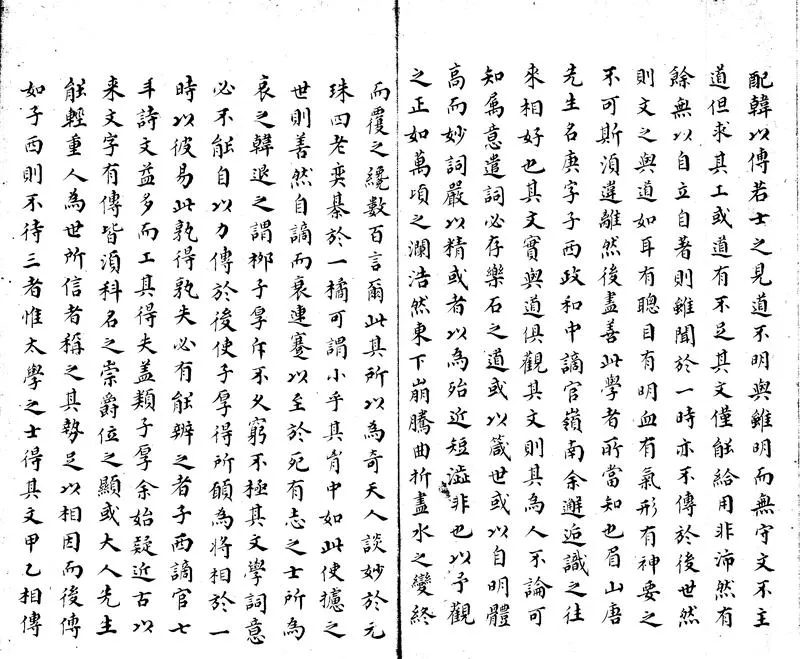 配韓以傳若士之見道不明與雖明而無守文不主
道但求其工或道有不足其文僅能給用非沛然有
餘無以自立自著則雖聞於一時亦不傳於後世然
則文之與道如耳有聰目有明血有氣形有神要之
不可斯須違離然後盡善此學者所當知也眉山唐
先生名庚字子西政和中謫官嶺南余邂逅識之往
來相好也其文實與道俱觀其文則其為人不論可
知属意遣詞必存藥石之道或以箴世或以自明體
高而妙詞嚴以精或者以為殆近短澁非也以予觀
之正如萬頃之瀾浩然東下崩騰曲折盡水之變終
而覆之纔數百言爾此其所以為奇天人談妙於元
珠四老奕棊於一橘可謂小乎其胷中如此使攄之
世則善然自謫而衰連蹇以至於死有志之士所為
哀之韓退之謂栁子厚斥不久窮不極其文學詞意
必不能自以力傳於後使子厚得所願為將相於一
時以彼易此孰得孰失必有能辨之者子西謫官七
年詩文益多而工其得失盖類子厚余始疑近古以
来文字有傳皆須科名之崇爵位之顯或大人先生
能輕重人為世所信者稱之其勢足以相因而後傳
如子西則不待三者惟太學之士得其文甲乙相傳